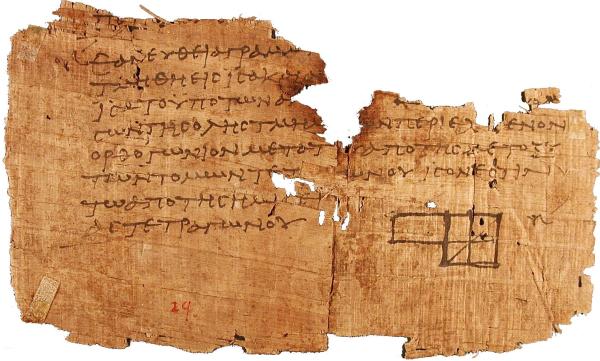 ΕΑΝ ΕΥΘΕΙΑ ΓΡΑΜΜ
ΤΜΗΘΗ ΕΙϹ ΙϹΑ ΚΑΙ
ΙϹΑ ΤΟ ΥΠΟ ΤΩΝ Α
ϹΩΝ ΤΗϹ ΟΛΗϹ ΤΜΗ Ν ΠΕΡΙΕΧΟΜΕΝΟΝ
ΟΡΘΟΓΩΝΙΟΝ ΜΕΤΑ ΤΟΥ ΑΠΟ ΤΗϹ ΜΕΤΟΞΥ
ΤΩΝ ΤΟΜΩΝ ΤΕ ΩΝΟΥ ΙϹΟΝ ΕϹΤΙΝ
ΤΩ ΑΠΟ ΤΗϹ ΗΜΙ
ΑϹ ΤΕΤΡΑΓΩΝΟΥ
29